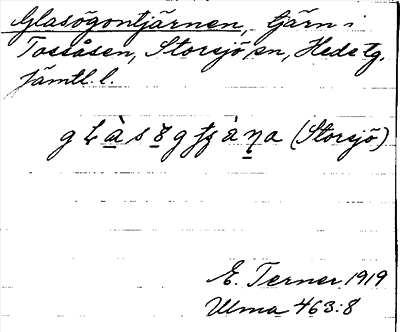 Glasögontjärnen, tjärn i
Tossåsen, Storsjö sn, Hede tg.
Jämtl. l.
(Storsjö)
E. Terner 1919
Ulma 463:8